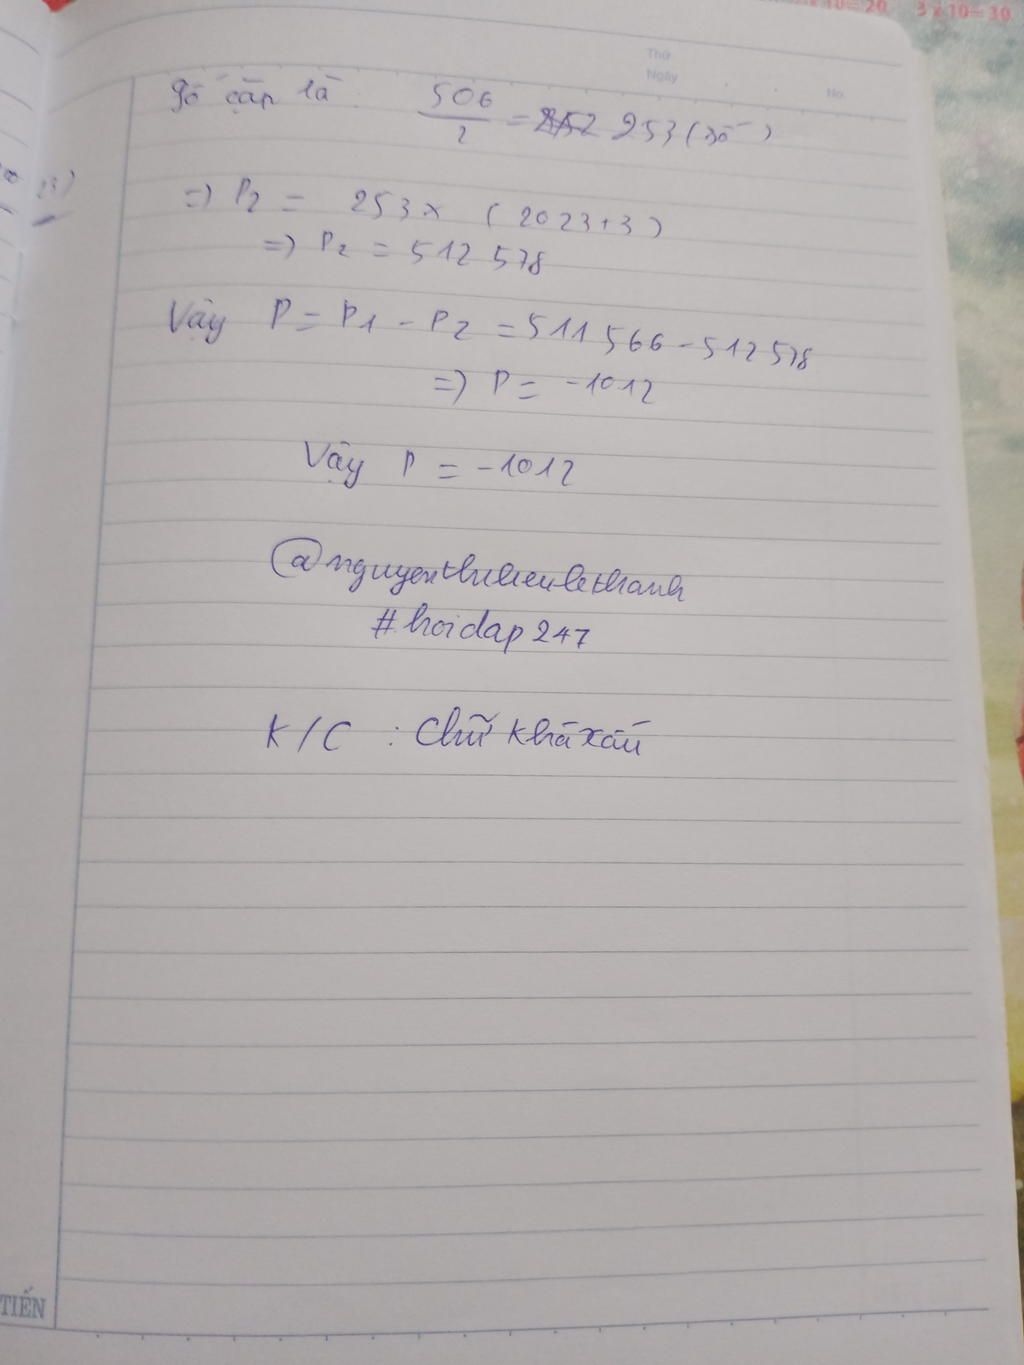 3 x 10 = 30
Thứ
Ngày
No.
Số cặp là : 506/2 = 253 (số)
=) P2 = 253 x (2023+3)
=) P2 = 512 578
Vậy P = P1 - P2 = 511 566 - 512 578
=) P = -1012
Vậy P = -1012
@nguyenthihienlethanh
#hoidap247
K/C : Chữ khá xấu
TIẾN